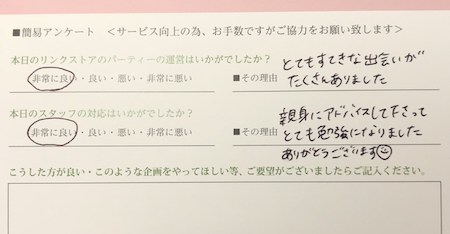 ■簡易アンケート <サービス向上の為、お手数ですがご協力をお願い致します>
本日のリンクストアのパーティーの運営はいかがでしたか？
非常に良い・良い・悪い・非常に悪い ■その理由 とてもすてきな出会いが
たくさんありました
本日のスタッフの対応はいかがでしたか？
非常に良い・良い・悪い・非常に悪い ■その理由 親身にアドバイスして下さって
とても勉強になりました
ありがとうございます
こうした方が良い・このような企画をやってほしい等、ご要望がございましたらご記入ください。